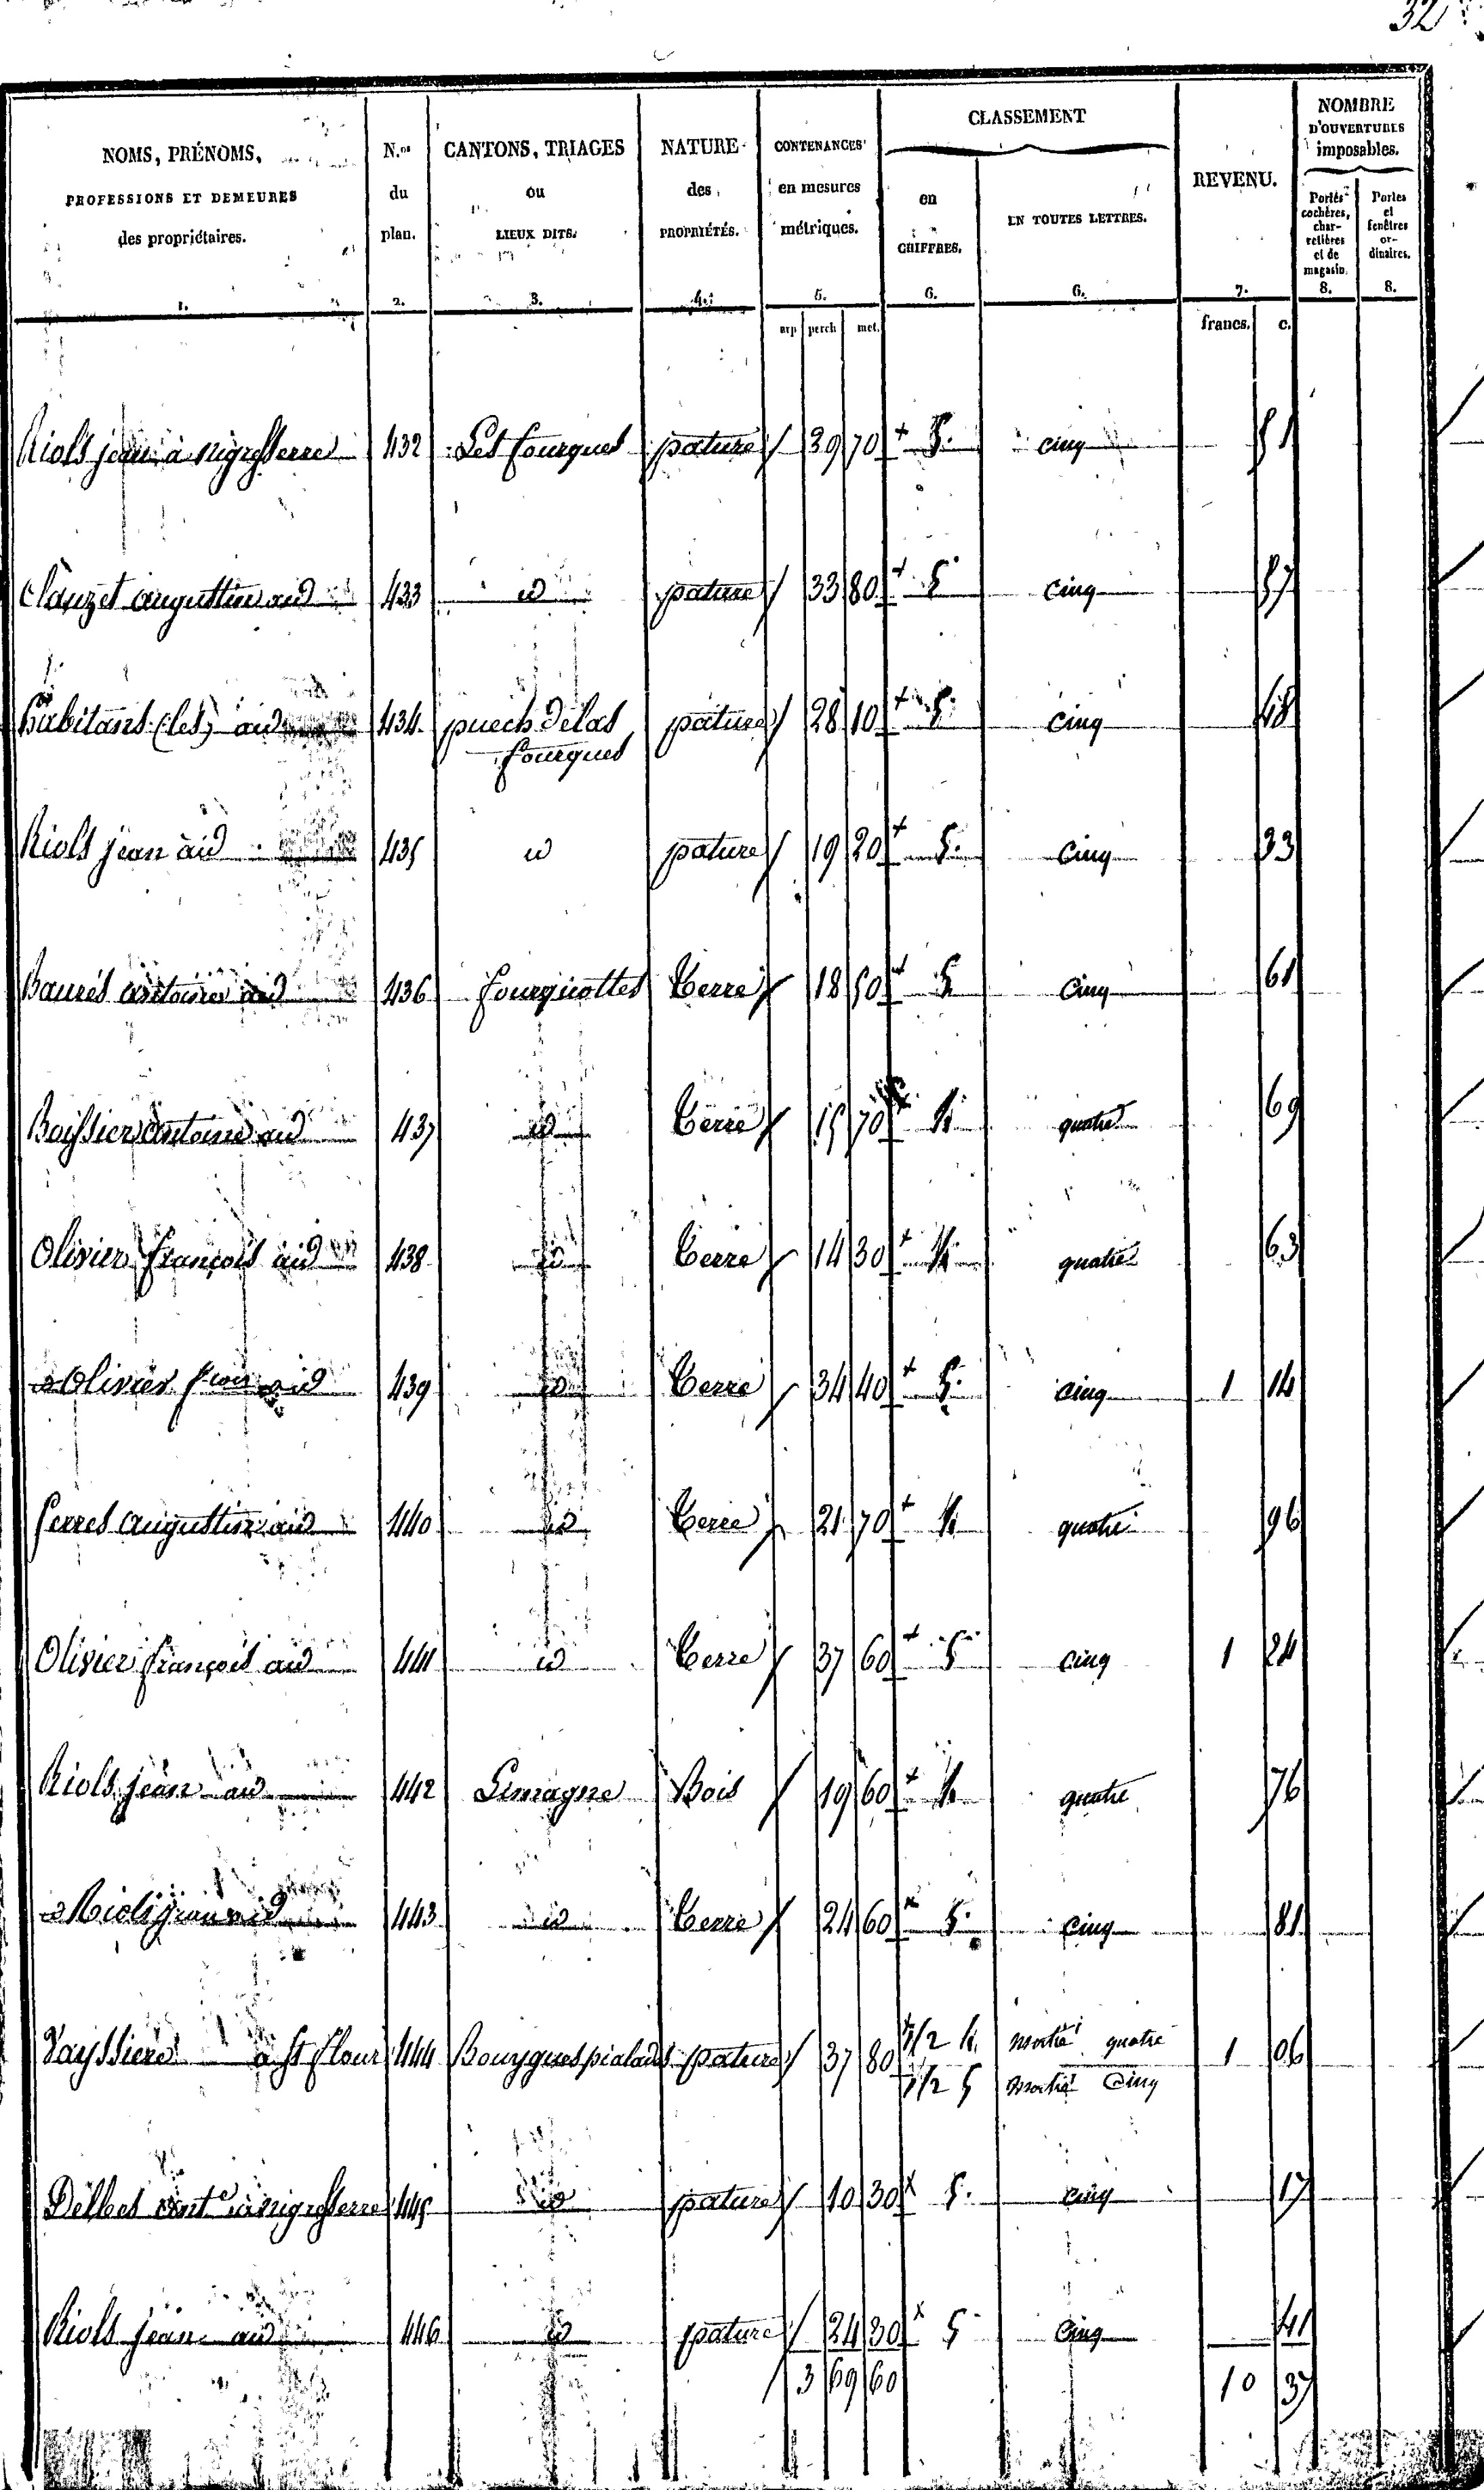 32
NOMS, PRÉNOMS, PROFESSIONS ET DEMEURES des propriétaires. 1.
N.os du plan. 2.
CANTONS, TRIAGES ou LIEUX DITS. 3.
NATURE des PROPRIÉTÉS. 4.
CONTENANCES en mesures métriques. 5.
CLASSEMENT
en CHIFFRES. 6.
EN TOUTES LETTRES. 6.
REVENU. 7.
NOMBRE D'OUVERTURES imposables.
Portes cochères, charretières et de magasin. 8.
Portes et fenêtres ordinaires. 8.
arp perch met. francs. c.
Riols jean à nigresserre 432 Les fourques pature 29 70 + 5. cinq 51
Clauzet augustin aid 433 id pature 33 80 + 5 cinq 57
habitans (les) aid 434 puech de las fourques pature 28 10 + 5. cinq 48
Riols jean aid 435 id pature 19 20 + 5. cinq 33
Baurés antoine aid 436 fourquottes terre 18 50 + 5 cinq 61
Boyssier antoine aid 437 id terre 15 70 4 quatre 69
Olivier françois aid 438 id terre 14 30 + 4 quatre 63
id Olivier fcois aid 439 id terre 34 40 + 5. cinq 1 14
ferres augustin aid 440 id terre 21 70 + 4 quatre 96
Olivier françois aid 441 id terre 37 60 + 5 cinq 1 24
Riols jean aid 442 Limagne Bois 19 60 + 4 quatre 76
id Riols jean aid 443 id terre 24 60 x 5. cinq 81
Vayssiere à St flour 444 Bouygues pialades pature 37 80 1/2 4. moitié quatre 1 06
1/2 5 moitié Cinq
Delbos ant.e à nigresserre 445 id pature 10 30 x 5. cinq 17
Riols jean aid 446 id pature 24 30 x 5 Cinq 41
3 69 60 10 37